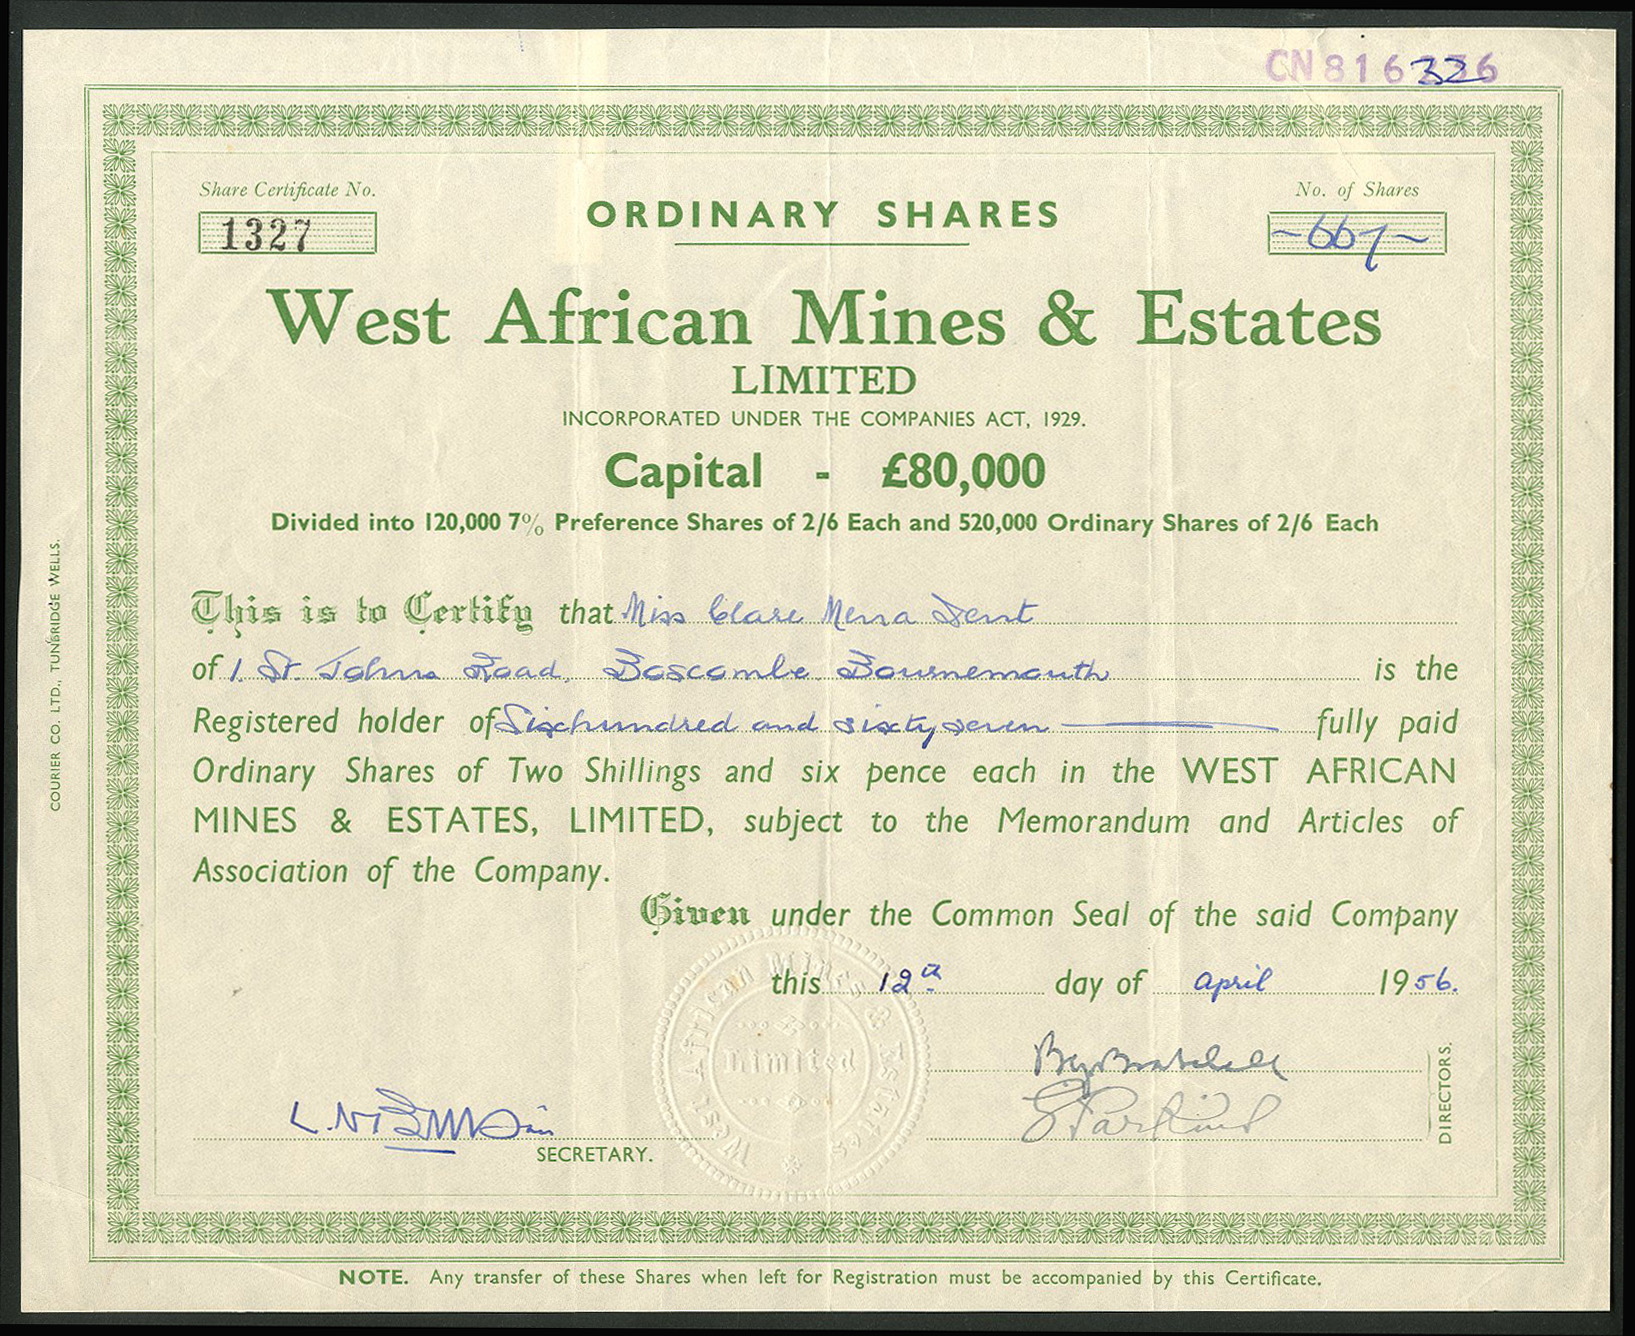 CN 816336
Share Certificate No.
1327
ORDINARY SHARES
No. of Shares
~667~
West African Mines & Estates
LIMITED
INCORPORATED UNDER THE COMPANIES ACT, 1929.
Capital - £80,000
Divided into 120,000 7% Preference Shares of 2/6 Each and 520,000 Ordinary Shares of 2/6 Each
This is to Certify that Miss Clare Mena Dent
of 1. St. Johns Road, Boscombe. Bournemouth is the
Registered holder of Sixhundred and sixty seven fully paid
Ordinary Shares of Two Shillings and six pence each in the WEST AFRICAN
MINES & ESTATES, LIMITED, subject to the Memorandum and Articles of
Association of the Company.
Given under the Common Seal of the said Company
this 12th day of April 1956.
West African Mines & Estates
Limited
DIRECTORS.
SECRETARY.
NOTE. Any transfer of these Shares when left for Registration must be accompanied by this Certificate.
COURIER CO. LTD., TUNBRIDGE WELLS.